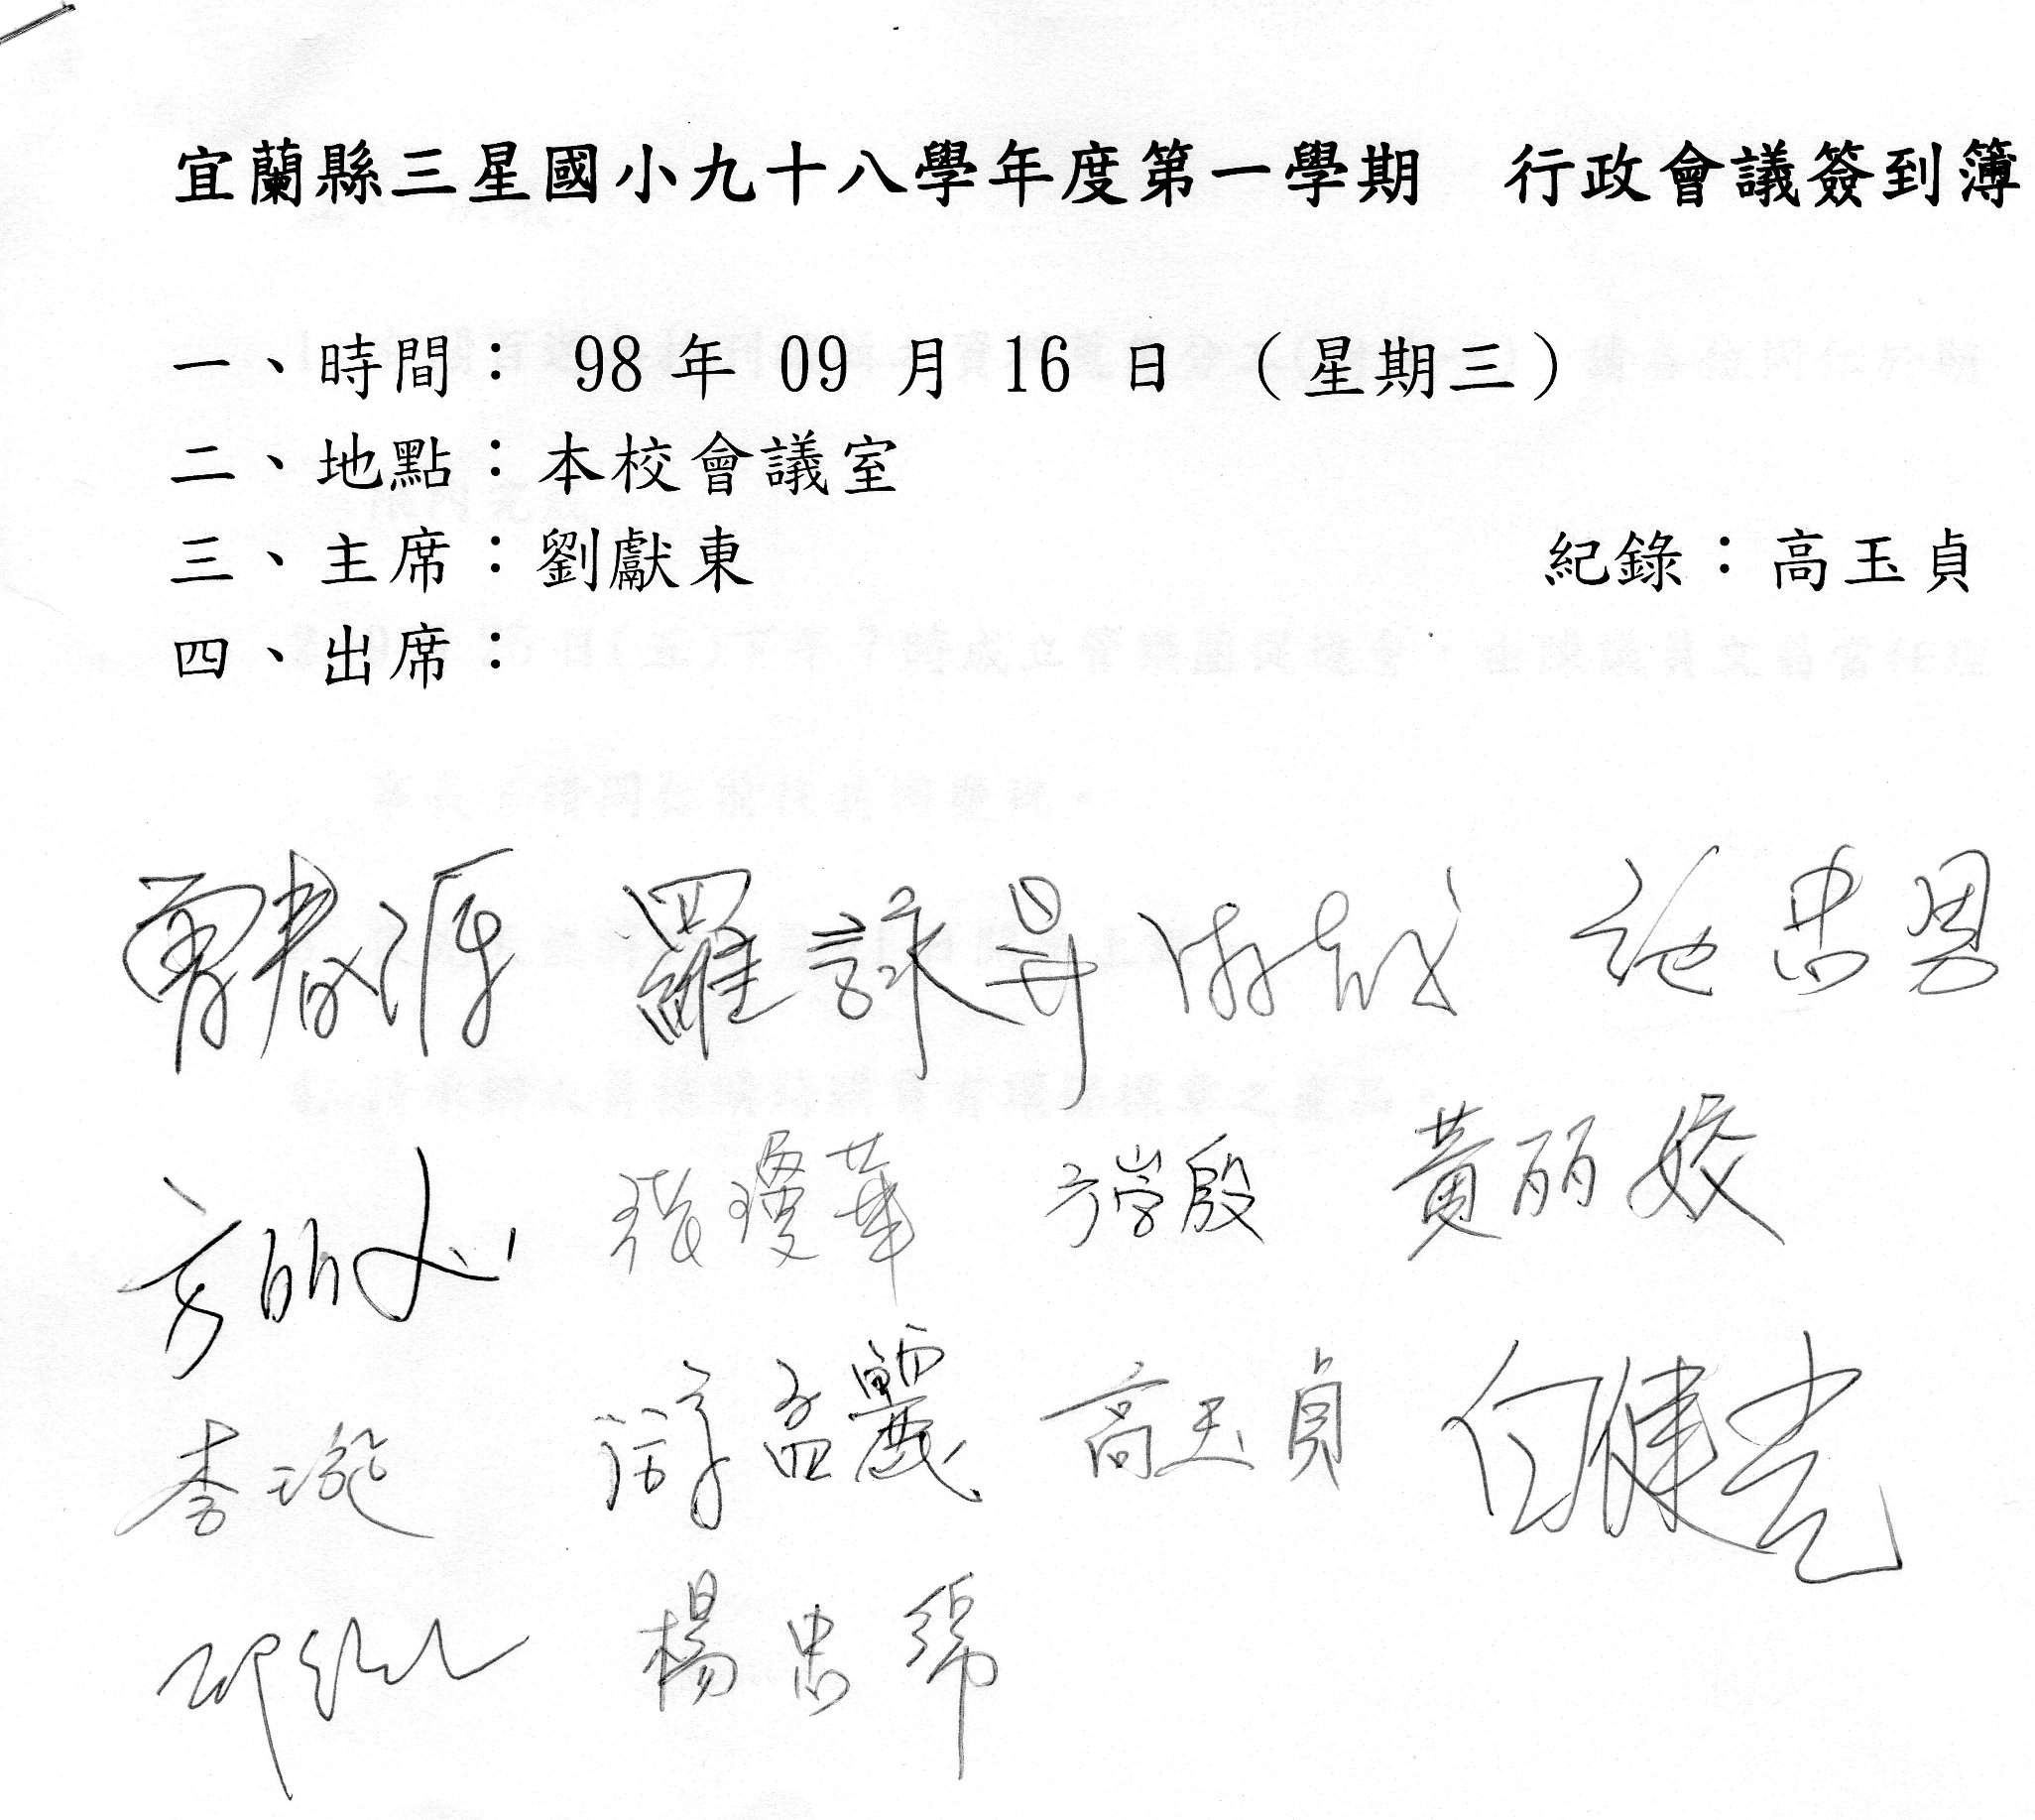 宜蘭縣三星國小九十八學年度第一學期 行政會議簽到簿
一、時間： 98 年 09 月 16 日 （星期三）
二、地點：本校會議室
三、主席：劉獻東 紀錄：高玉貞
四、出席：
羅詠昇 施忠男
張瓊華 黃丽姣
李 游孟麗 高玉貞
楊忠